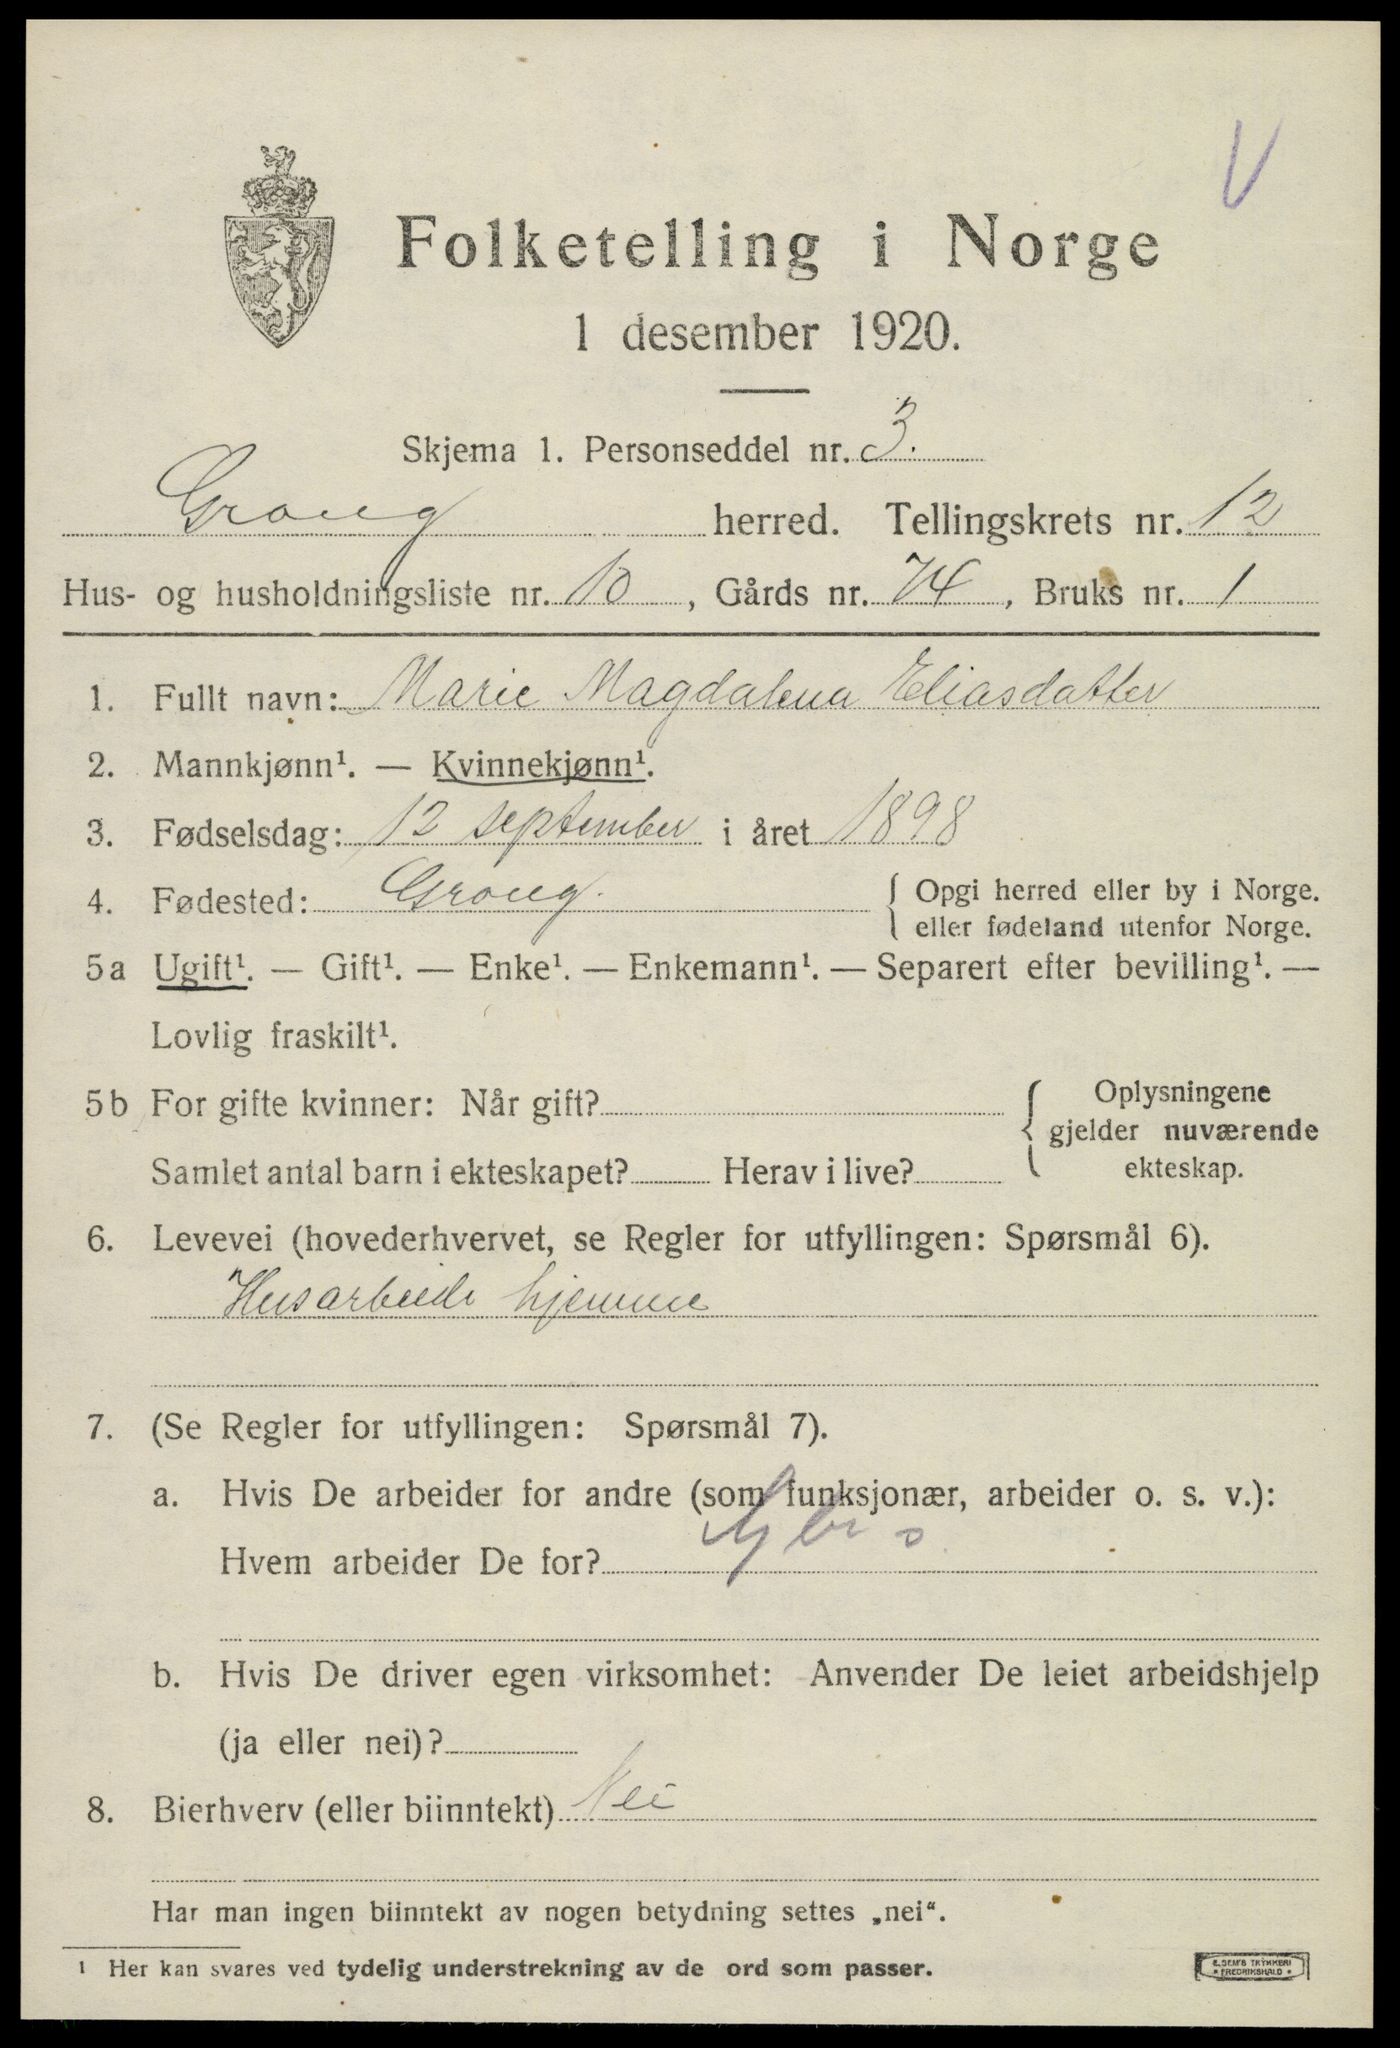 V
Folketelling i Norge
1 desember 1920.
Skjema 1. Personseddel nr. 3.
Grong herred. Tellingskrets nr. 12
Hus- og husholdningsliste nr. 10, Gårds nr. 74, Bruks nr. 1
1. Fullt navn: Marie Magdalena Eliasdatter
2. Mannkjønn¹. — Kvinnekjønn¹.
3. Fødselsdag: 12 september i året 1898
4. Fødested: Grong. { Opgi herred eller by i Norge.
eller fødeland utenfor Norge.
5a Ugift¹. — Gift¹. — Enke¹. — Enkemann¹. — Separert efter bevilling¹. —
Lovlig fraskilt¹.
5b For gifte kvinner: Når gift? { Oplysningene
gjelder nuværende
Samlet antal barn i ekteskapet? Herav i live? ekteskap.
6. Levevei (hovederhvervet, se Regler for utfyllingen: Spørsmål 6).
Husarbeide hjemme
7. (Se Regler for utfyllingen: Spørsmål 7).
a. Hvis De arbeider for andre (som funksjonær, arbeider o. s. v.):
Hvem arbeider De for?
b. Hvis De driver egen virksomhet: Anvender De leiet arbeidshjelp
(ja eller nei)?
8. Bierhverv (eller biinntekt) Nei
Har man ingen biinntekt av nogen betydning settes „nei“.
1 Her kan svares ved tydelig understrekning av de ord som passer.
E. SEM'S TRYKKERI
• FREDRIKSHALD •